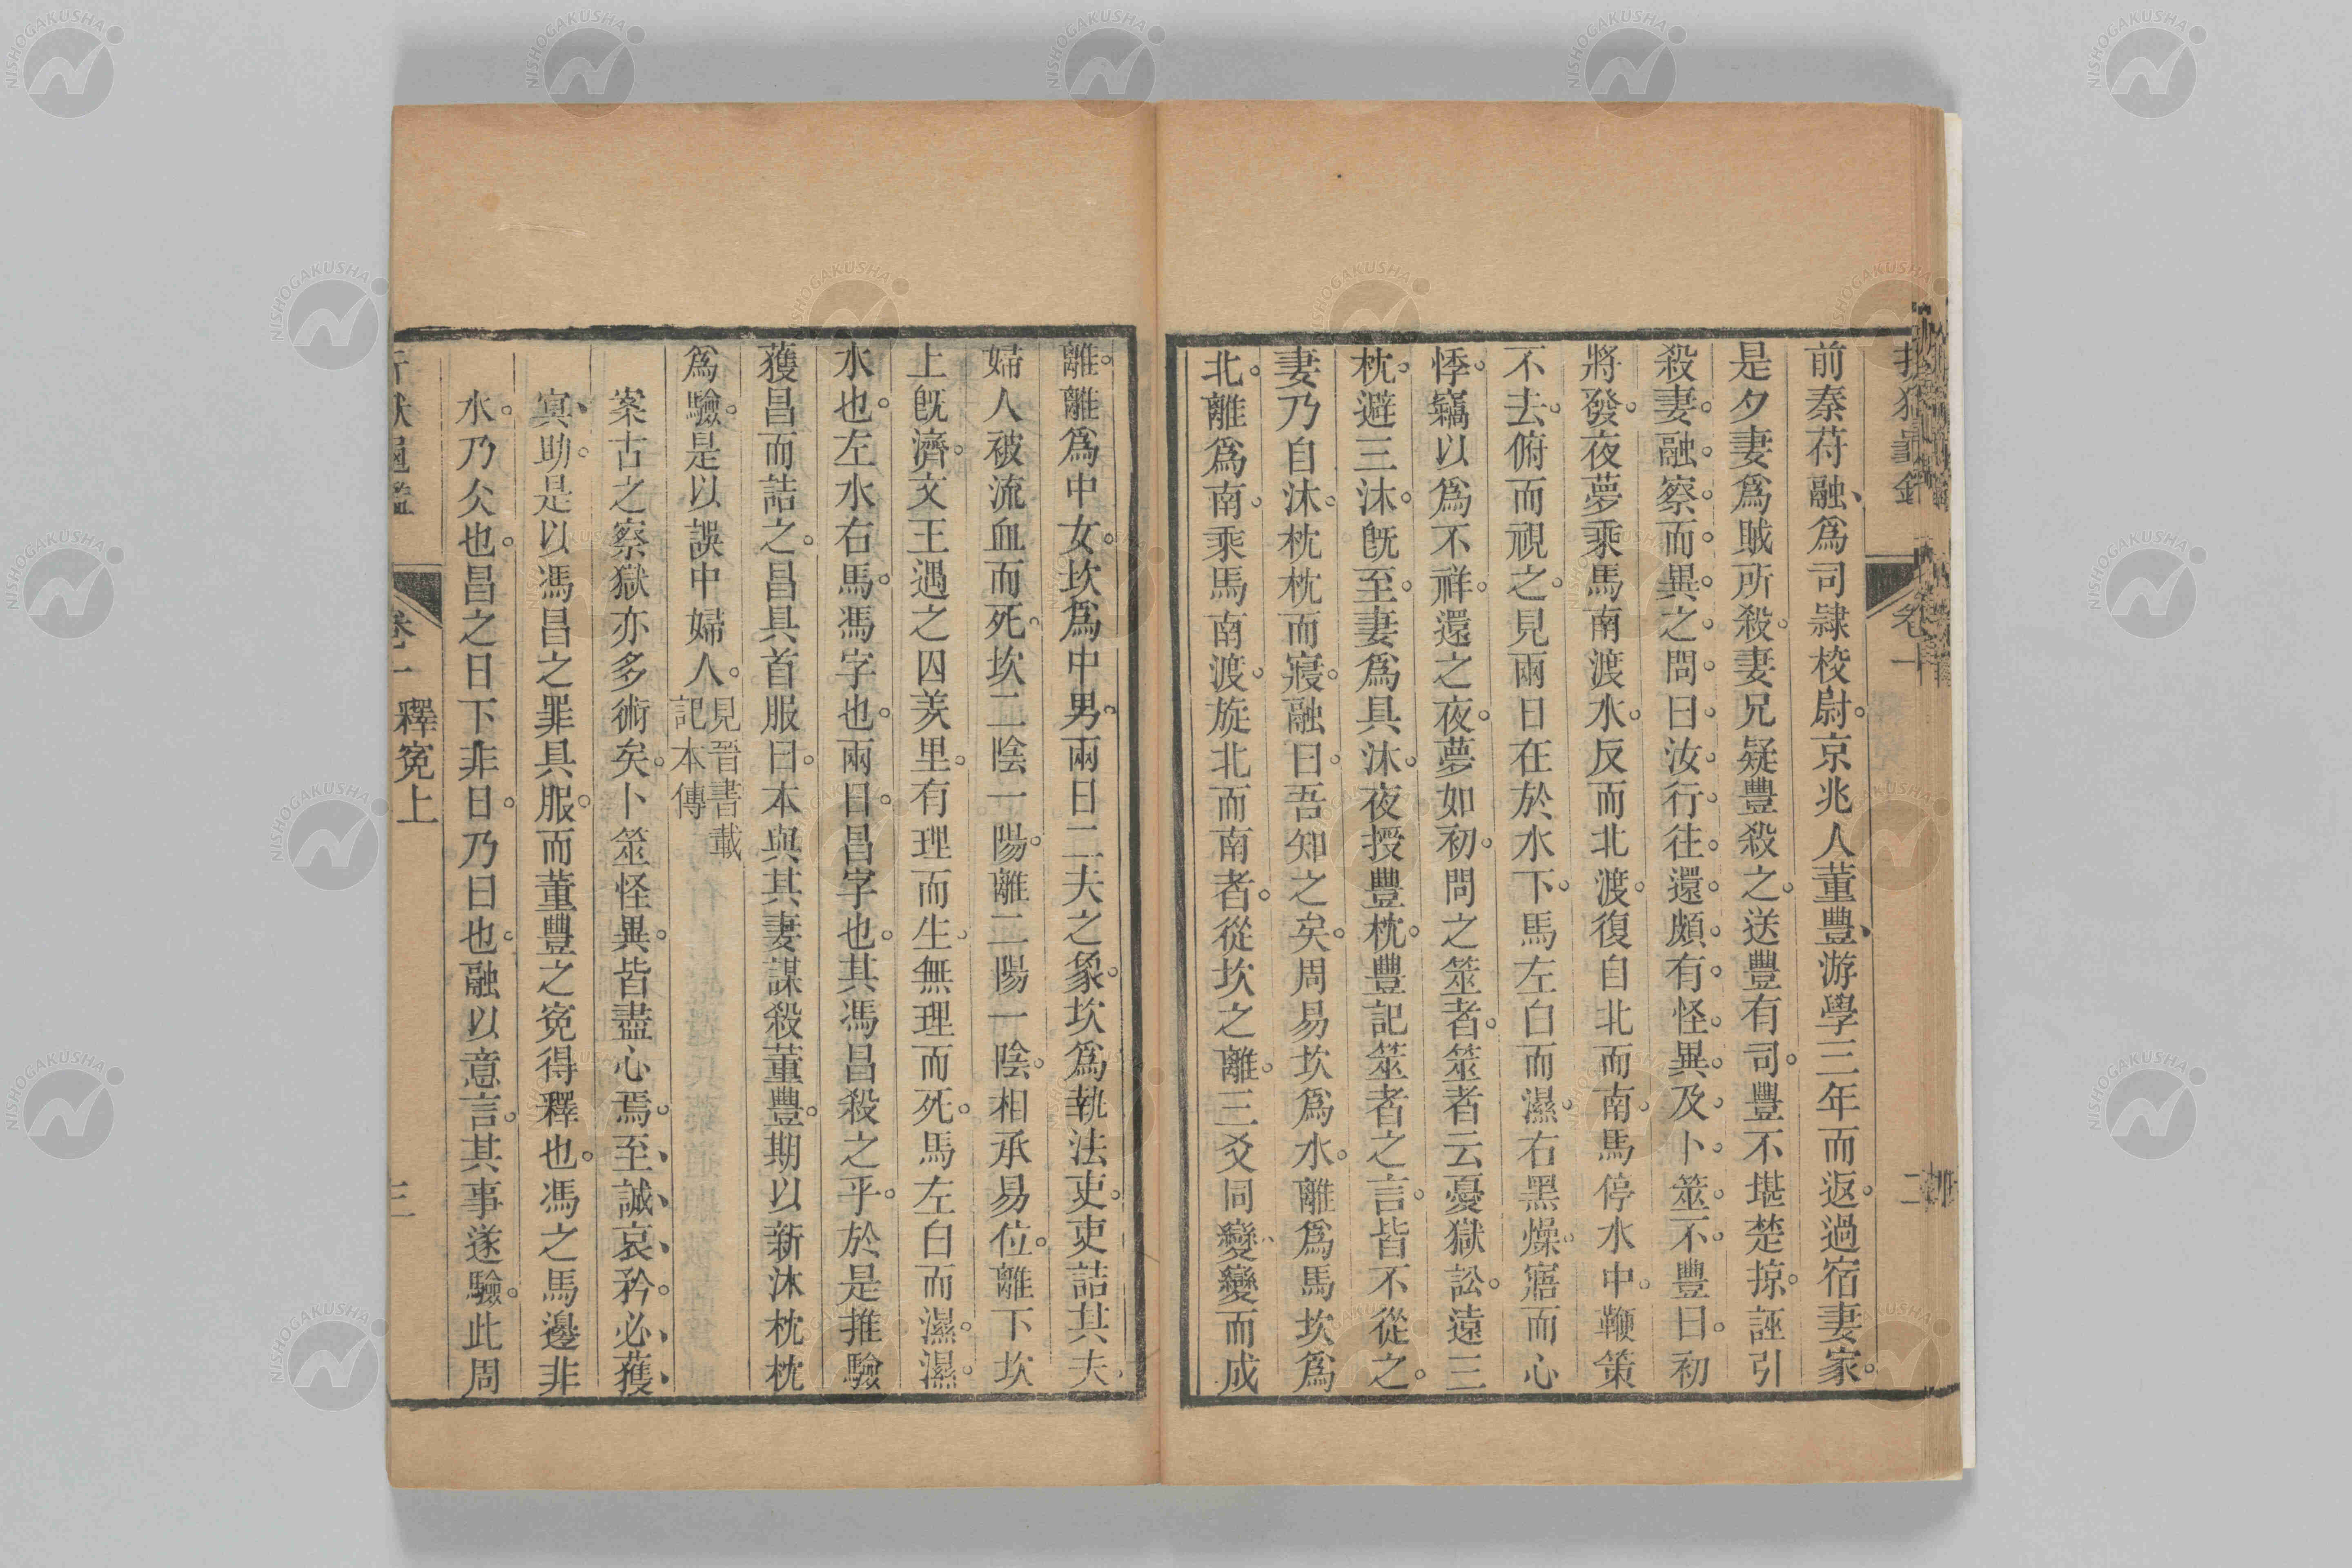 前秦苻融、爲司隸校尉。京兆人董豐、游學三年而返。過宿妻家。
是夕妻爲賊所殺。妻兄疑豐殺之。送豐有司。豐不堪楚掠。誣引
殺妻。融察而異之。問曰。汝行往還。頗有怪異。及卜筮不。豐曰。初
將發。夜夢乘馬南渡水。反而北渡。復自北而南。馬停水中。鞭策
不去。俯而視之。見兩日在於水下。馬左白而濕。右黑燥。寤而心
悸。竊以爲不祥。還之夜。夢如初。問之筮者。筮者云憂獄訟。遠三
枕。避三沐。既至。妻爲具沐。夜授豐枕。豐記筮者之言。皆不從之。
妻乃自沐。枕枕而寢。融曰。吾知之矣。周易坎爲水。離爲馬坎爲
北。離爲南。乘馬南渡。旋北而南者。從坎之離。三爻同變變而成
離。離爲中女。坎爲中男。兩日二夫之象。坎爲執法吏。吏詰其夫。
婦人被流血而死。坎二陰一陽。離二陽一陰。相承易位。離下坎
上既濟。文王遇之囚羑里。有理而生。無理而死。馬左白而濕。濕。
水也。左水右馬。馮字也。兩日。昌字也。其馮昌殺之乎。於是推驗
獲昌而詰之。昌具首服曰。本與其妻謀殺董豐。期以新沐枕枕
爲驗。是以誤中婦人。見晉書載記本傳
案古之察獄亦多術矣。卜筮怪異。皆盡心焉。至、誠、哀、矜。必、獲、
冥、助。是以馮昌之罪具服。而董豐之寃得釋也。馮之馬邊非
水。乃仌也。昌之日下非日。乃曰也。融以意言。其事遂驗。此周
釋寃上